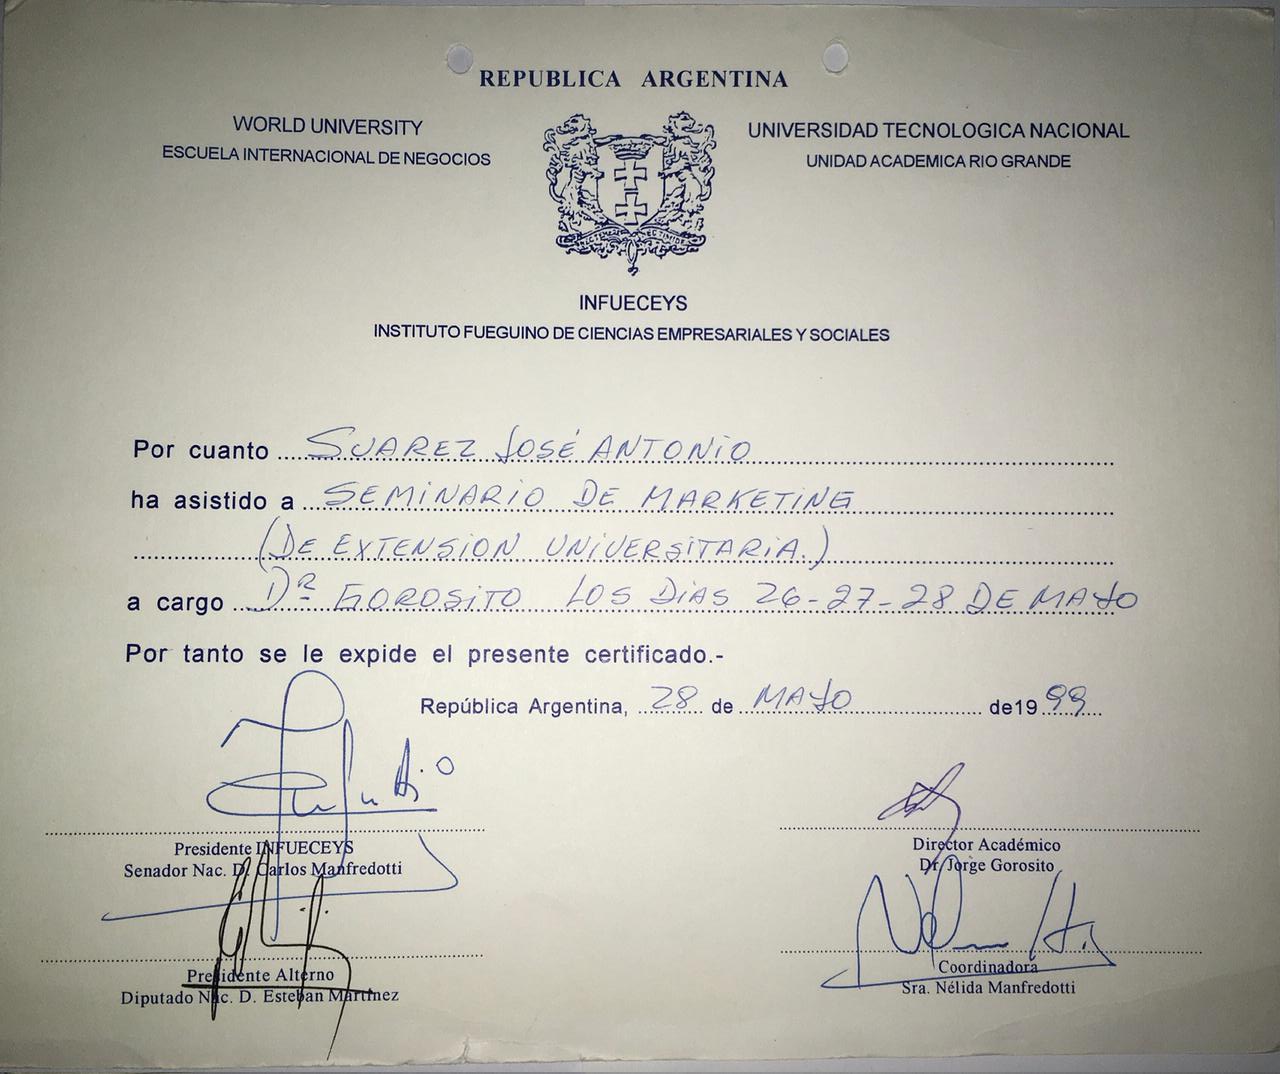 REPUBLICA ARGENTINA
WORLD UNIVERSITY
ESCUELA INTERNACIONAL DE NEGOCIOS
UNIVERSIDAD TECNOLOGICA NACIONAL
UNIDAD ACADEMICA RIO GRANDE
INFUECEYS
INSTITUTO FUEGUINO DE CIENCIAS EMPRESARIALES Y SOCIALES
Por cuanto SUAREZ JOSÉ ANTONIO
ha asistido a SEMINARIO DE MARKETING
(DE EXTENSION UNIVERSITARIA.)
a cargo DR GOROSITO LOS DIAS 26-27-28 DE MAYO
Por tanto se le expide el presente certificado.-
República Argentina, 28 de MAYO de 1999
Presidente INFUECEYS
Senador Nac. D. Carlos Manfredotti
Director Académico
Dr. Jorge Gorosito
Presidente Alterno
Diputado Nac. D. Esteban Martínez
Coordinadora
Sra. Nélida Manfredotti